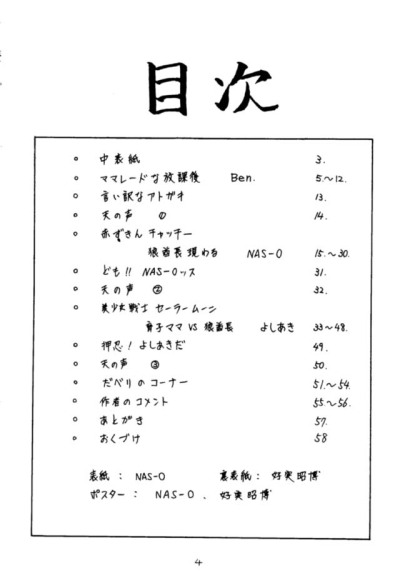 目次
○ 中表紙 3.
○ ママレードな放課後 Ben. 5.〜12.
○ 言い訳なアトガキ 13.
○ 天の声 ① 14.
○ 赤ずきんチャッチー
狼酋長現わる NAS-O 15.〜30.
○ ども!! NAS-Oッス 31.
○ 天の声 ② 32.
○ 美少女戦士セーラームーン
育子ママ VS 狼酋長 よしあき 33〜48.
○ 押忍! よしあきだ 49.
○ 天の声 ③ 50.
○ だべりのコーナー 51.〜54.
○ 作者のコメント 55〜56.
○ あとがき 57.
○ おくづけ 58
表紙: NAS-O 裏表紙: 好実昭博
ポスター: NAS-O、好実昭博
4